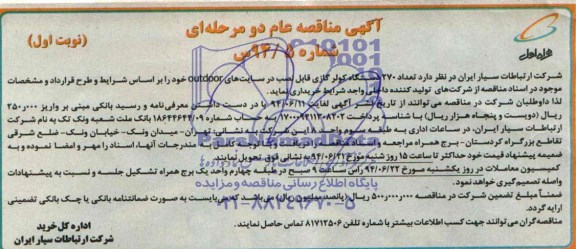 آگهی مناقصه عام دو مرحله‌ای
شماره ۵/۹۴/س
(نوبت اول)
همراه اول
شرکت ارتباطات سیار ایران در نظر دارد تعداد ۲۷۰ دستگاه کولر گازی قابل نصب در سایت‌های outdoor خود را بر اساس شرایط و طرح قرارداد و مشخصات
موجود در اسناد مناقصه از شرکت‌های تولید کننده داخلی واجد شرایط خریداری نماید.
لذا داوطلبان شرکت در مناقصه می‌توانند از تاریخ نشر آگهی لغایت ۹۴/۰۶/۱۱ با در دست داشتن معرفی‌نامه و رسید بانکی مبنی بر واریز ۲۵۰,۰۰۰
ریال (دویست و پنجاه هزار ریال) با شناسه پرداخت به حساب شماره بانک ملت شعبه ونک تک به نام شرکت
ارتباطات سیار ایران، در ساعات اداری به طبقه سوم واحد ۸ این شرکت به نشانی تهران - میدان ونک - خیابان ونک - ضلع شرقی
تقاطع بزرگراه کردستان - برج همراه مندرجات آنها، اسناد را مهر و امضا نموده و به
ضمیمه پیشنهاد قیمت خود حداکثر تا ساعت ۱۵ روز شنبه مورخ ۹۴/۰۶/۲۱ به نشانی فوق تحویل نمایند.
کمیسیون معاملات در روز یکشنبه مورخ ۹۴/۰۶/۲۲ راس ساعت ۹ صبح در طبقه چهارم واحد یک برج همراه تشکیل جلسه و نسبت به پیشنهادات
واصله تصمیم‌گیری خواهد نمود.
ضمناً مبلغ تضمین شرکت در مناقصه ۵۰۰,۰۰۰,۰۰۰ ریال (پانصد میلیون ریال) می‌باشد که می‌بایست به صورت ضمانتنامه بانکی یا چک بانکی تضمینی
ارایه گردد.
مناقصه‌گران می‌توانند جهت کسب اطلاعات بیشتر با شماره تلفن ۸۱۷۱۲۵۰۶ تماس حاصل نمایند.
اداره کل خرید
شرکت ارتباطات سیار ایران
پایگاه اطلاع رسانی مناقصه و مزایده
۰۲۱-۸۸۳۴۹۶۷۰-۵